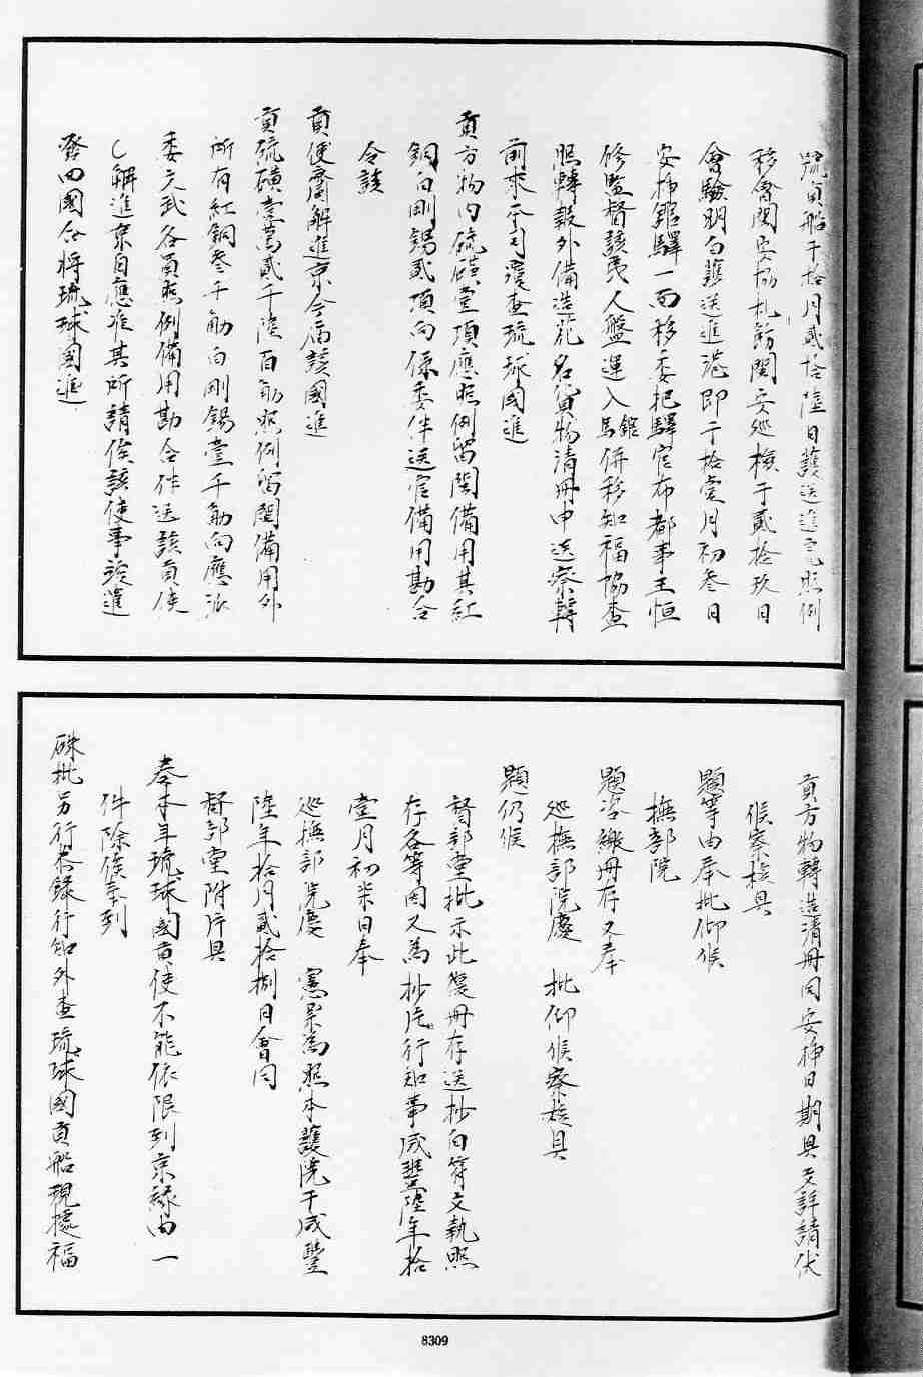 號貢船于拾月貳拾陸日護送進亀照例
移會閩安協札飭閩安巡檢于貳拾玖日
會驗明白護送進港即于拾壹月初叁日
安挿館驛一面移委把驛官布都事王恒
修監督該夷人盤運入館併移知福協查
照轉報外備造花名貨物清冊申送察轉
前來本司覆查琉球國進
貢方物内硫磺壹項應照例留閩備用其紅
銅白剛錫貳項向係委伴送官備用勘合
令該
貢使齎解進京今届該國進
貢硫磺壹萬貳千陸百觔照例留閩備用外
所有紅銅叁千觔白剛錫壹千觔向應派
委文武各員照例備用勘合伴送該貢使
解進京自應准其所請俟該使事竣遣
發回國合將琉球國進
貢方物轉造清冊同安挿日期具文詳請伏
候察核具
題等由奉批仰候
撫部院
題咨繳冊存又奉
巡撫部院慶 批仰候察核具
題仍候
督部堂批示此復冊存送抄白符文執照
存各等因又為抄片行知事咸豐陸年拾
壹月初柒日奉
巡撫部院慶 憲票為照本護院于咸豐
陸年拾月貳拾捌日會同
督部堂附片具
奏本年琉球國貢使不能依限到京緣由一
件除俟奉到
硃批另行恭錄行知外查琉球國貢船現據福
8309